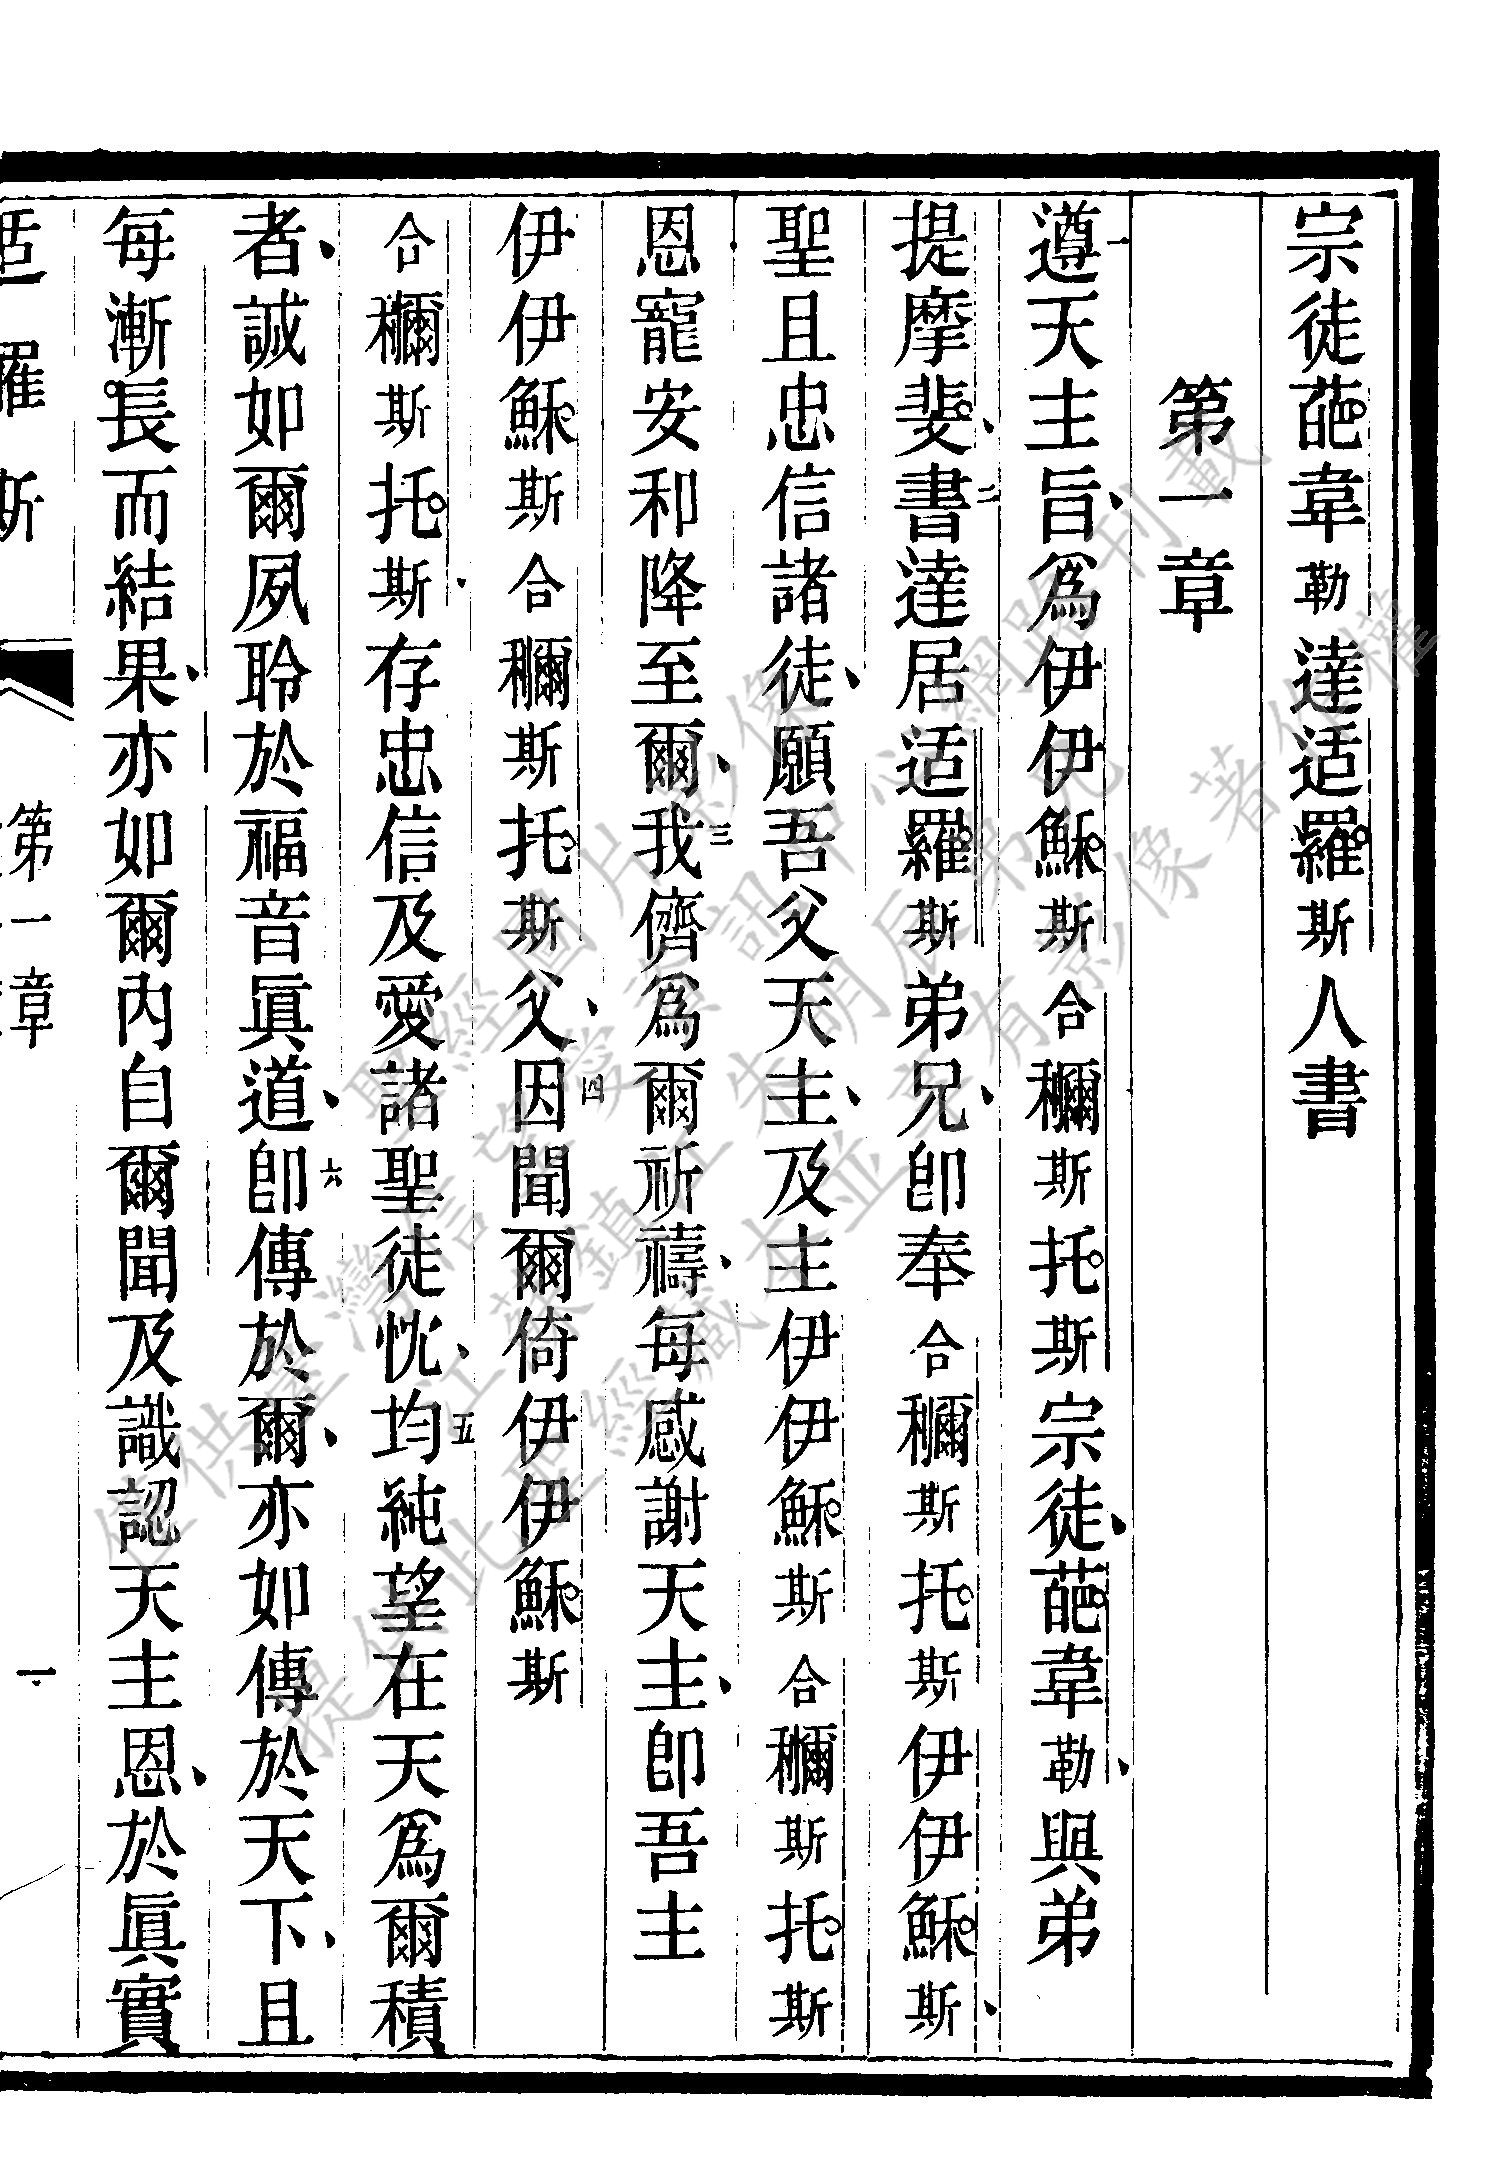 宗徒葩韋勒達适羅斯人書
第一章
一遵天主旨、爲伊伊穌斯合穪斯托斯宗徒、葩韋勒、與弟
提摩斐、二書達居适羅斯弟兄、卽奉合穪斯托斯伊伊穌斯、
聖且忠信諸徒、願吾父天主、及主伊伊穌斯合穪斯托斯
恩寵安和降至爾、三我儕爲爾祈禱、每感謝天主、卽吾主
伊伊穌斯合穪斯托斯父、四因聞爾倚伊伊穌斯
合穪斯托斯、存忠信及愛諸聖徒忱、五均純望在天爲爾積
者、誠如爾夙聆於福音眞道、六卽傳於爾、亦如傳於天下、且
每漸長而結果、亦如爾內自爾聞及識認天主恩、於眞實
适羅斯
第一章
一
僅供臺灣信望愛資訊中心網路刊載
提供此聖經圖片影像